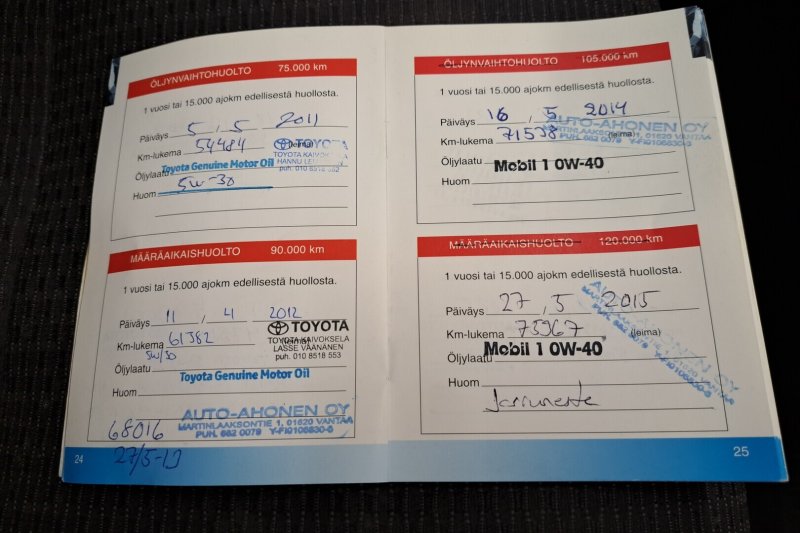 ÖLJYNVAIHTOHUOLTO 75.000 km
1 vuosi tai 15.000 ajokm edellisestä huollosta.
Päiväys 5 / 5 2011
Km-lukema 54484 (leima)
TOYOTA
TOYOTA KAIVOKSELA
HANNU
puh. 010 8518
Öljylaatu Toyota Genuine Motor Oil
5W-30
Huom
MÄÄRÄAIKAISHUOLTO 90.000 km
1 vuosi tai 15.000 ajokm edellisestä huollosta.
Päiväys 11 / 4 2012
Km-lukema 61382 (leima)
TOYOTA
TOYOTA KAIVOKSELA
LASSE VÄÄNÄNEN
puh. 010 8518 553
5W/30
Öljylaatu Toyota Genuine Motor Oil
Huom
AUTO-AHONEN OY
MARTINLAAKSONTIE 1, 01620 VANTAA
PUH. 682 0079 Y-FI0106830-5
68016
24
ÖLJYNVAIHTOHUOLTO 105.000 km
1 vuosi tai 15.000 ajokm edellisestä huollosta.
Päiväys 16 / 5 2014
Km-lukema 71538 (leima)
AUTO-AHONEN OY
MARTINLAAKSONTIE 1, 01620 VANTAA
PUH. 682 0079 Y-FI0106830-5
Öljylaatu Mobil 1 0W-40
Huom
MÄÄRÄAIKAISHUOLTO 120.000 km
1 vuosi tai 15.000 ajokm edellisestä huollosta.
Päiväys 27 / 5 2015
Km-lukema 75967 (leima)
Öljylaatu Mobil 1 0W-40
Huom
Jarruneste
25